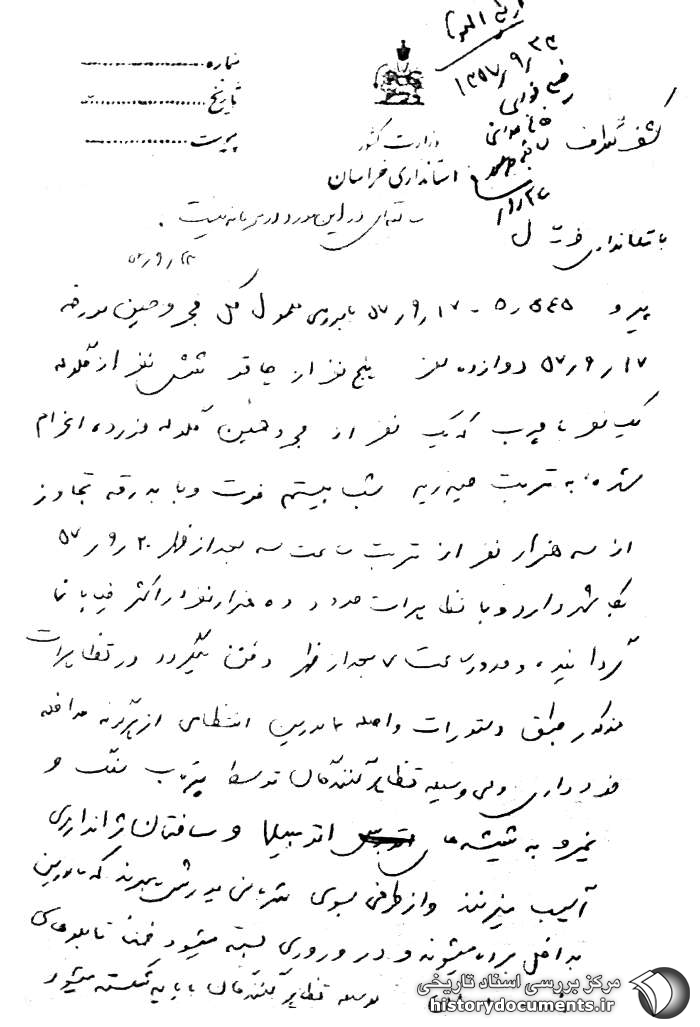 ۱۳۵۷/۹/۲۳
شماره
تاریخ
پیوست
وزارت کشور
استانداری خراسان
کشف تلگراف
سابقه‌ای در این مورد در سامانه نیست.
باستانداری
پیرو ۵۴۵ر۵ - ۱۷ر۹ر۵۷ با بررسی معمول کل مجروحین مورخه
۱۷ر۹ر۵۷ دوازده نفر پنج نفر از چاقو شش نفر از گلوله
یک نفر با چوب که یک نفر از مجروحین گلوله خورده اعزام
شده به تربت حیدریه شب بیستم فوت و با بدرقه تجاوز
از سه هزار نفر از تربت ساعت سه بعدازظهر ۲۰ر۹ر۵۷
بکاشمر وارد و با تظاهرات حدود ده هزار نفر در اکثر خیابانها
گردانیده و حدود ساعت ۷ بعدازظهر دفن میگردد در تظاهرات
مذکور طبق دستورات واصله مامورین انتظامی از هرگونه مداخله
خودداری ولی وسیله تظاهرکنندگان توسط پرتاب سنگ و
غیره به شیشه‌های اتومبیلها و ساختمان ژاندارمری
آسیب میزنند و از طرفی بسوی شهربانی یورش میبرند که مامورین
بداخل میشوند و درب ورودی بسته میشود ضمنا تابلوهای
توسط تظاهرکنندگان با پایه شکسته میشود
مرکز بررسی اسناد تاریخی
historydocuments.ir